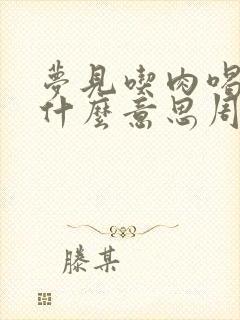 夢見喫肉喝
什麼意思周
滕某